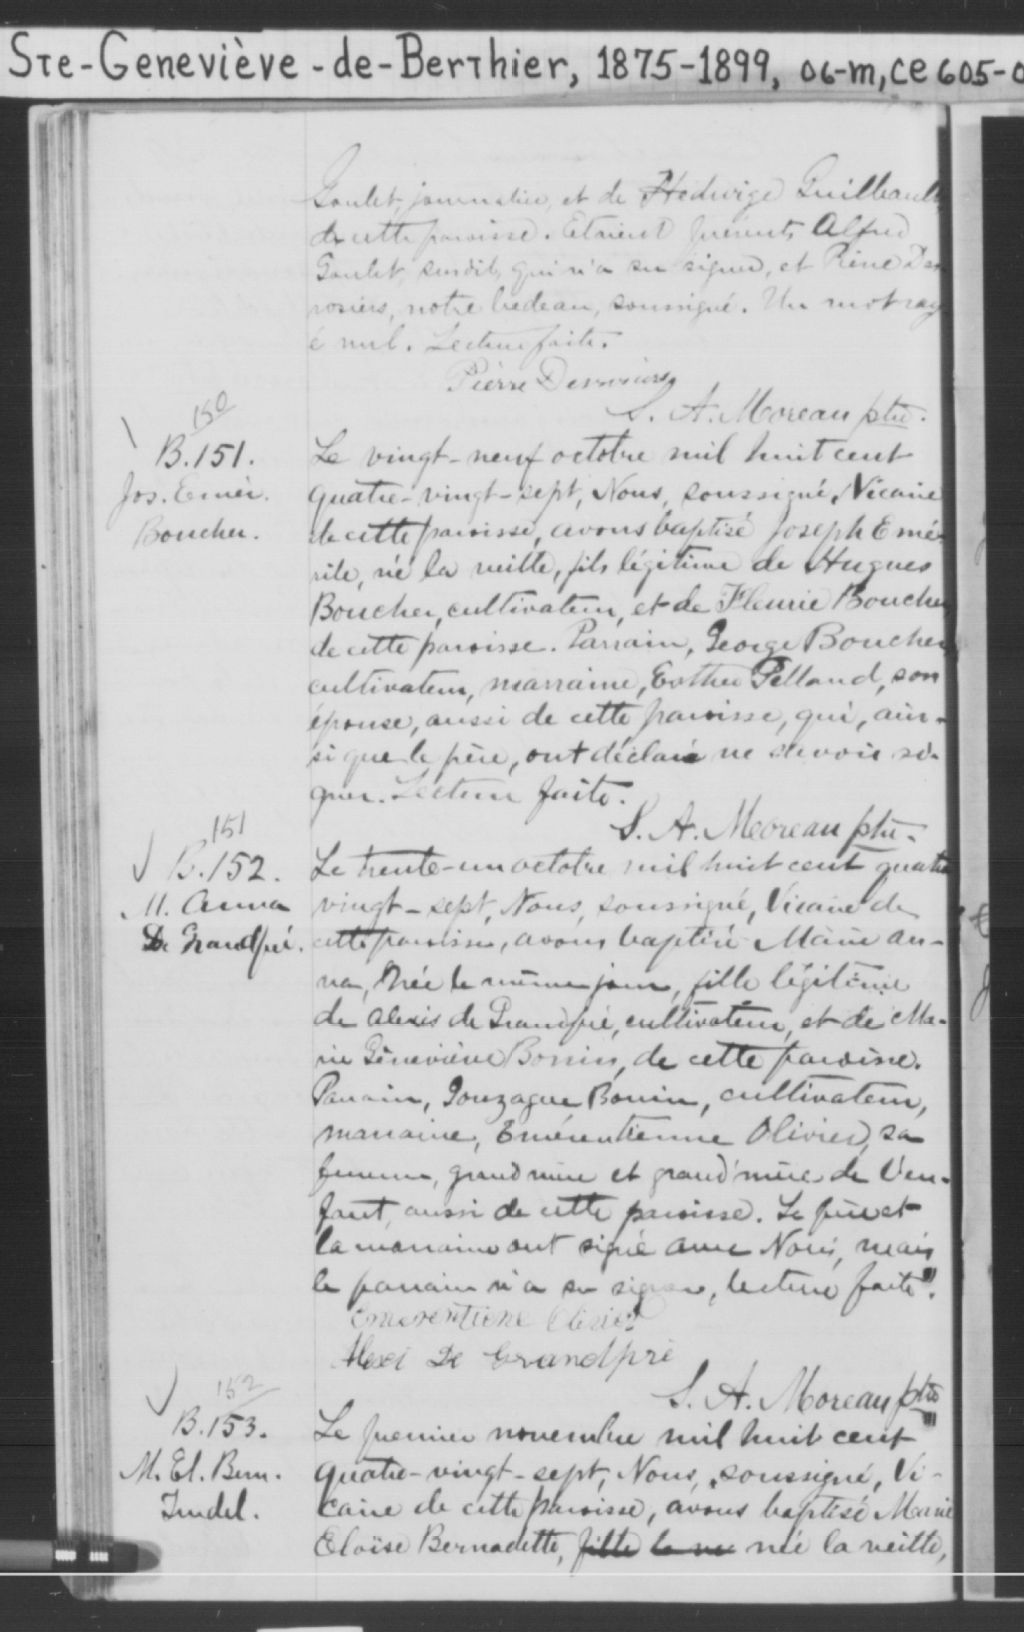 Ste-Geneviève-de-Berthier, 1875-1899, 06-m, ce 605-0
Goulet, journalier, et de Hedwige Guilbault
de cette paroisse. Etaient présents Alfred
Goulet, susdit, qui n'a su signer, et Pierre Des
rosiers, notre bedeau, soussigné. Un mot ray
é nul. Lecture faite.
Pierre Desrosiers
S. A. Moreau ptre.
150
B. 151.
Jos. Emér.
Boucher.
Le vingt-neuf octobre mil huit cent
quatre-vingt-sept, Nous, soussigné, Vicaire
de cette paroisse, avons baptisé Joseph Emé-
rile, né la veille, fils légitime de Hugues
Boucher, cultivateur, et de Fleurie Boucher
de cette paroisse. Parrain, George Boucher
cultivateur, marraine, Esther Pelland, son
épouse, aussi de cette paroisse, qui, ain-
si que le père, ont déclaré ne savoir si-
gner. Lecture faite.
S. A. Moreau ptre.
151
B. 152.
M. Anna
De Grandpré.
Le trente-un octobre mil huit cent quatre
vingt-sept, Nous, soussigné, Vicaire de
cette paroisse, avons baptisé Marie An-
na, née le même jour, fille légitime
de Alexis de Grandpré, cultivateur, et de Ma-
rie Geneviève Bonin, de cette paroisse.
Parrain, Gonzague Bonin, cultivateur,
marraine, Emérentienne Olivier, sa
femme, grand père et grand'mère de l'en-
fant, aussi de cette paroisse. Le père et
la marraine ont signé avec Nous, mais
le parrain n'a su signer, lecture faite.
Emerentiene Olivier
Alexi De Grandpré
S. A. Moreau ptre
152
B. 153.
M. El. Bern.
Le premier novembre mil huit cent
quatre-vingt-sept, Nous, soussigné, Vi-
caire de cette paroisse, avons baptisé Marie
Eloïse Bernadette, fille née la veille,